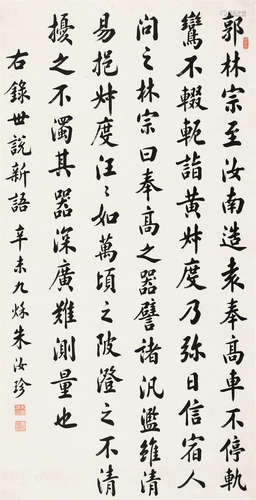 郭林宗至汝南造袁奉高車不停軌
鸞不輟軛詣黃叔度乃彌日信宿人
問之林宗曰奉高之器譬諸汎濫雖清
易挹叔度汪汪如萬頃之陂澄之不清
擾之不濁其器深廣難測量也
右錄世說新語 辛未九秌 朱汝珍